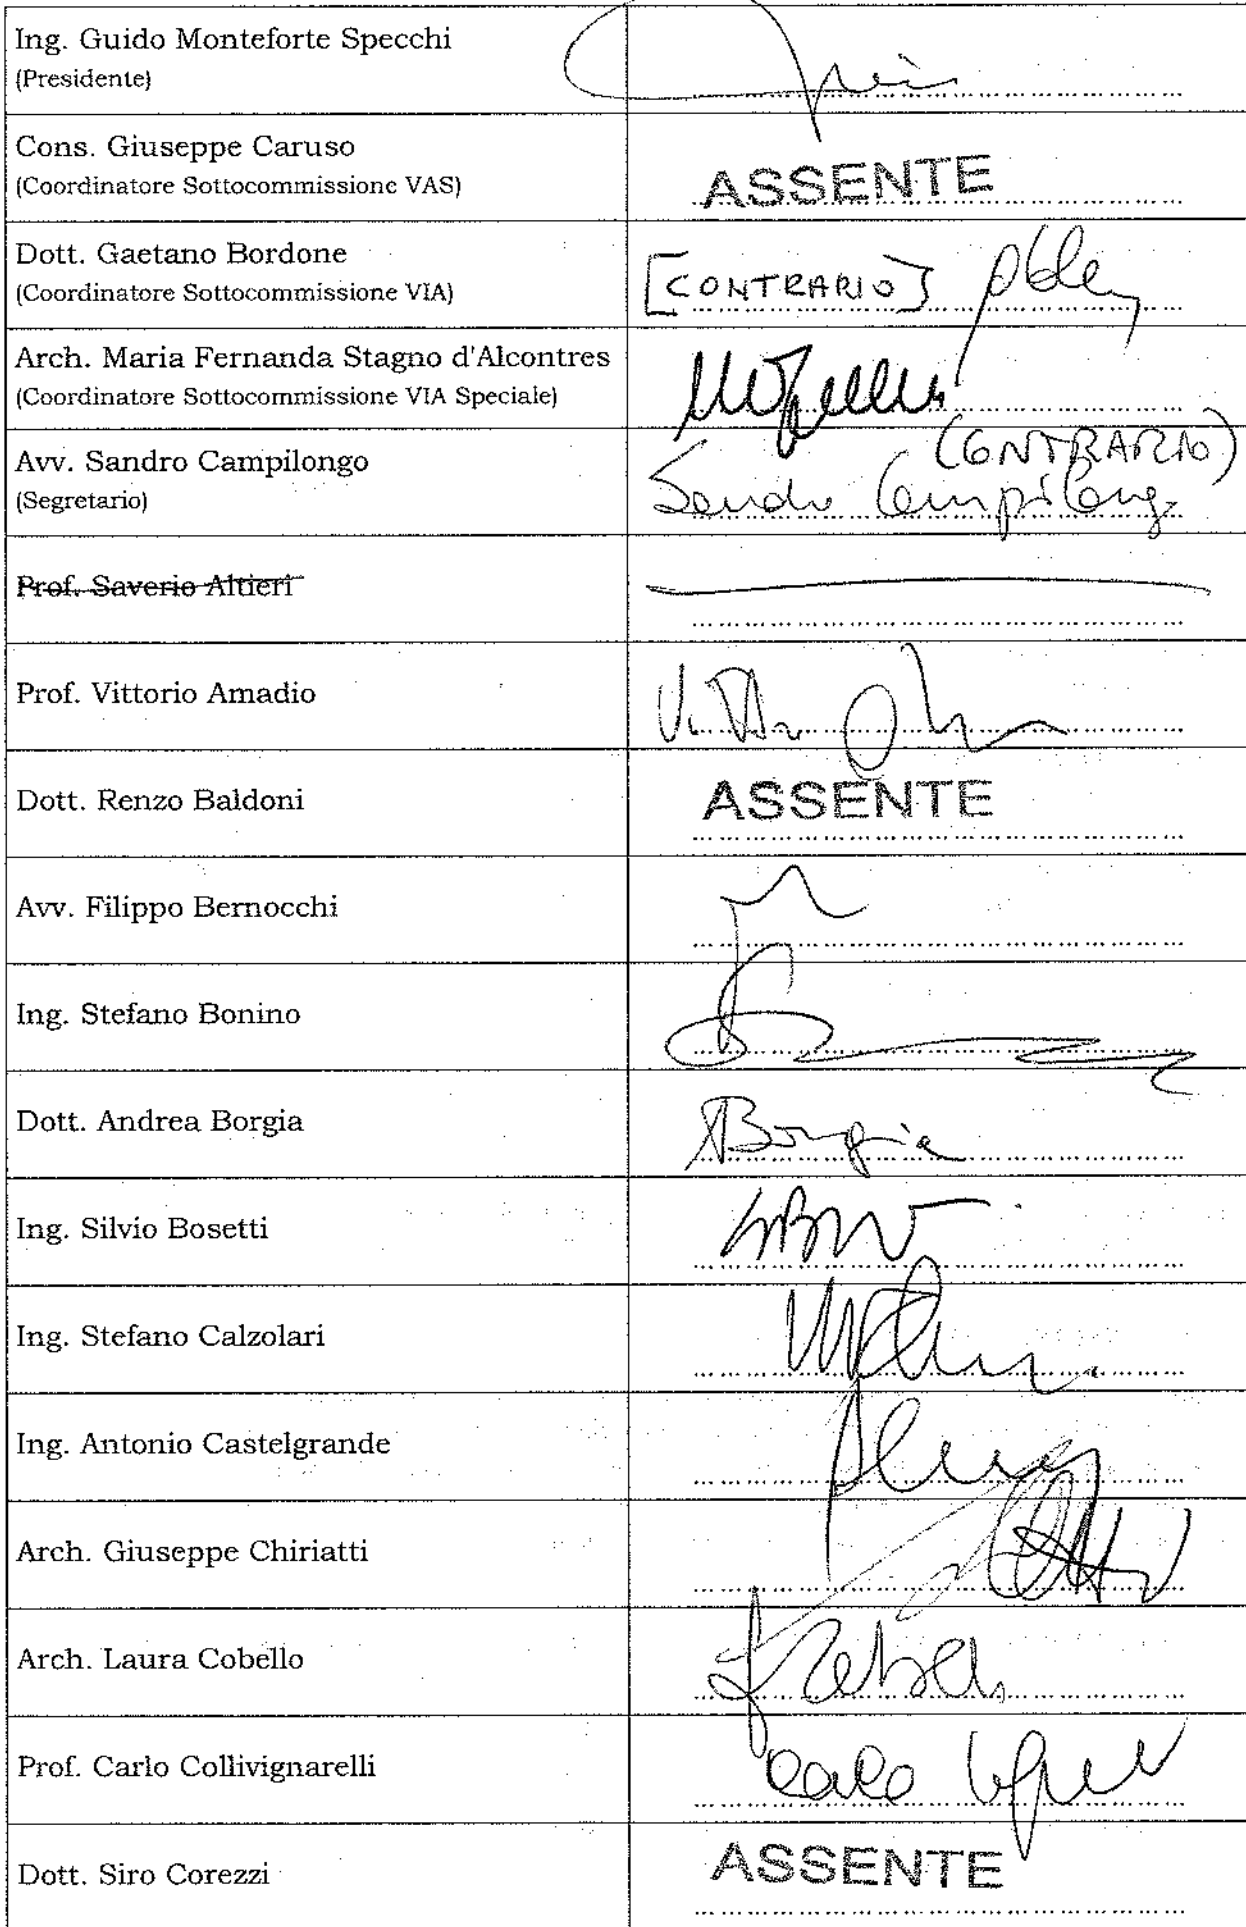 Ing. Guido Monteforte Specchi
(Presidente)
Cons. Giuseppe Caruso
(Coordinatore Sottocommissione VAS)
ASSENTE
Dott. Gaetano Bordone
(Coordinatore Sottocommissione VIA)
[CONTRARIO]
Arch. Maria Fernanda Stagno d'Alcontres
(Coordinatore Sottocommissione VIA Speciale)
Avv. Sandro Campilongo
(Segretario)
(CONTRARIO)
Sandro Campilongo
Prof. Saverio Altieri
Prof. Vittorio Amadio
Dott. Renzo Baldoni
ASSENTE
Avv. Filippo Bernocchi
Ing. Stefano Bonino
Dott. Andrea Borgia
ABorgia
Ing. Silvio Bosetti
Ing. Stefano Calzolari
Ing. Antonio Castelgrande
Arch. Giuseppe Chiriatti
Arch. Laura Cobello
Prof. Carlo Collivignarelli
Dott. Siro Corezzi
ASSENTE